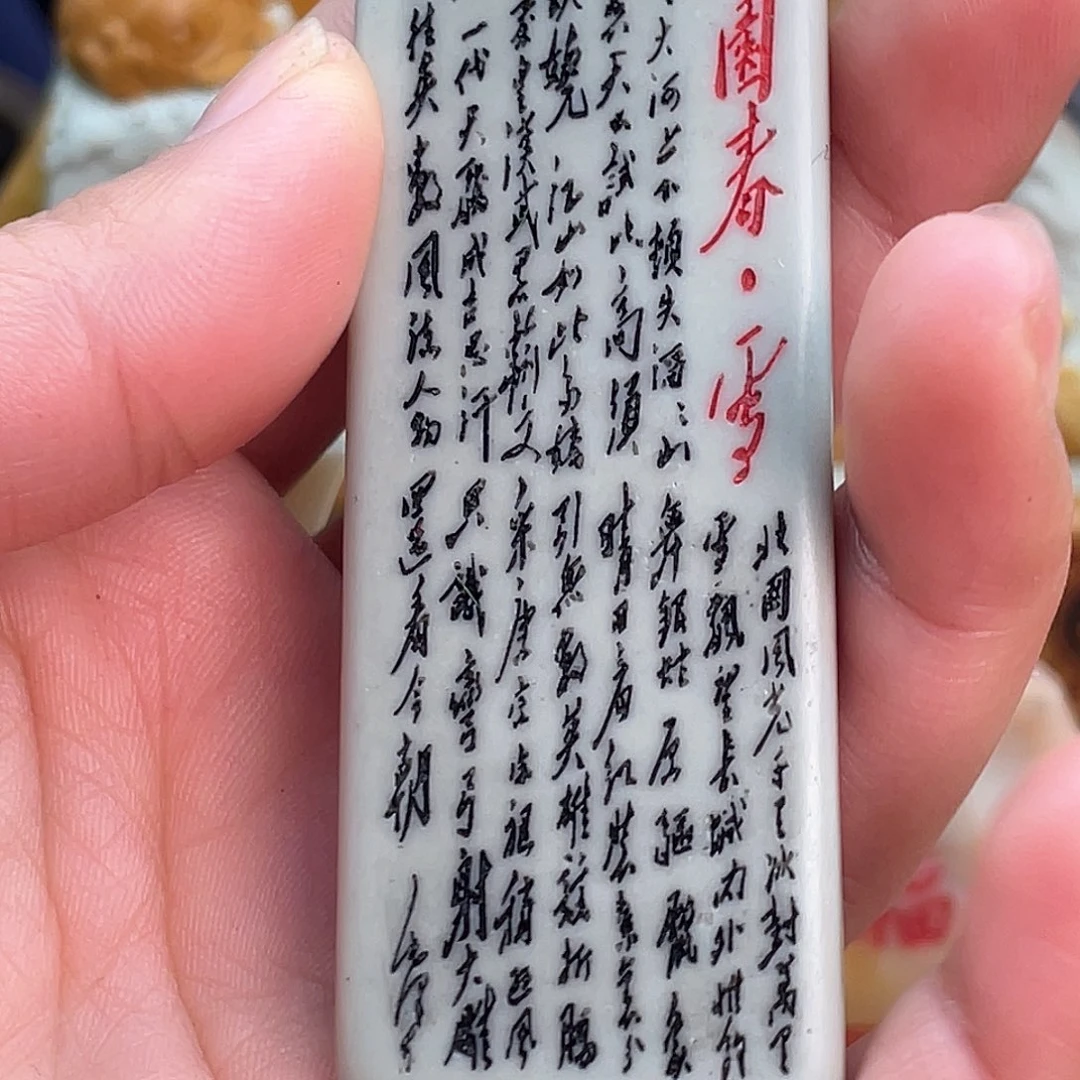 園春·雪
北國風光千里冰封萬里
雪飄望長城内外惟餘
大河上下頓失滔々山舞銀蛇原驅臘象
天公試比高須晴日看紅裝素裹分
嬈江山如此多嬌引無數英雄競折腰
秦皇漢武畧輸文采唐宗宋祖稍遜風
一代天驕成吉思汗只識彎弓射大雕
往矣數風流人物還看今朝毛澤東